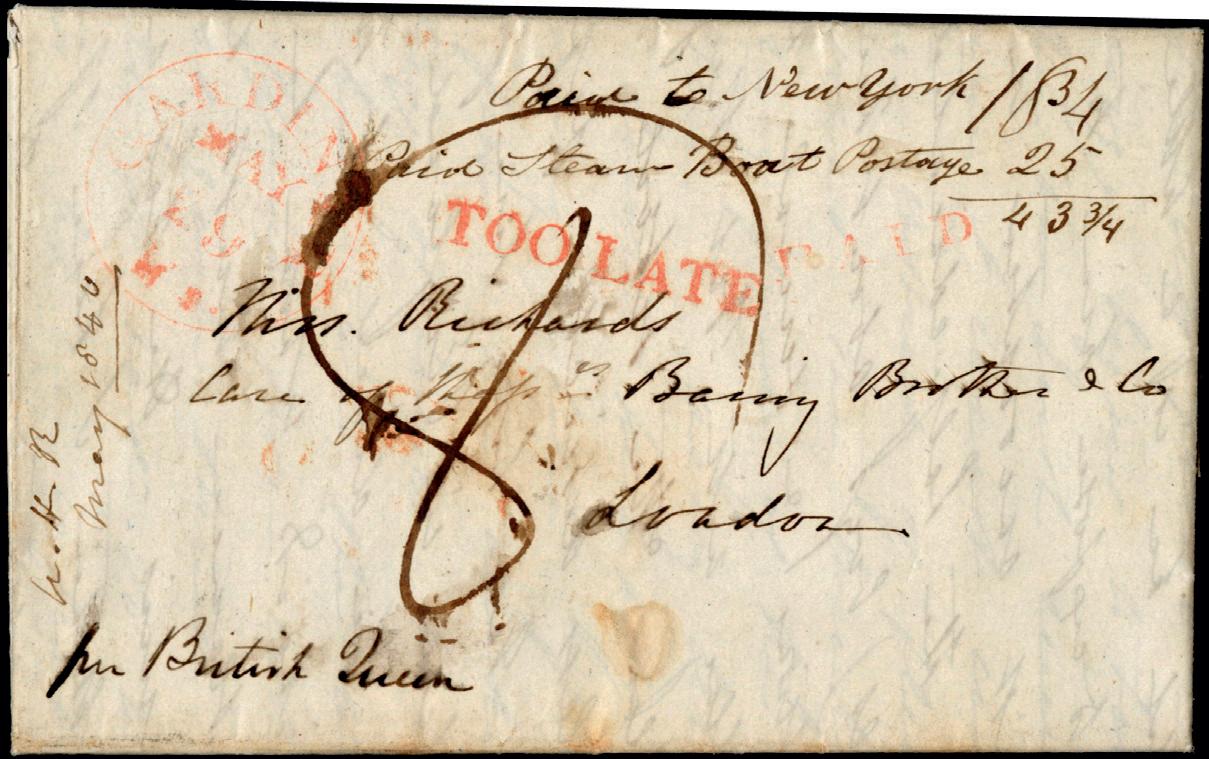 Paid to New York 18 3/4
Paid Steam Boat Postage 25
43 3/4
GARDIN
MAY
9
TOO LATE
PAID
Mrs. Richards
Care of Baring Brother & Co
London
per British Queen
May 1840
8